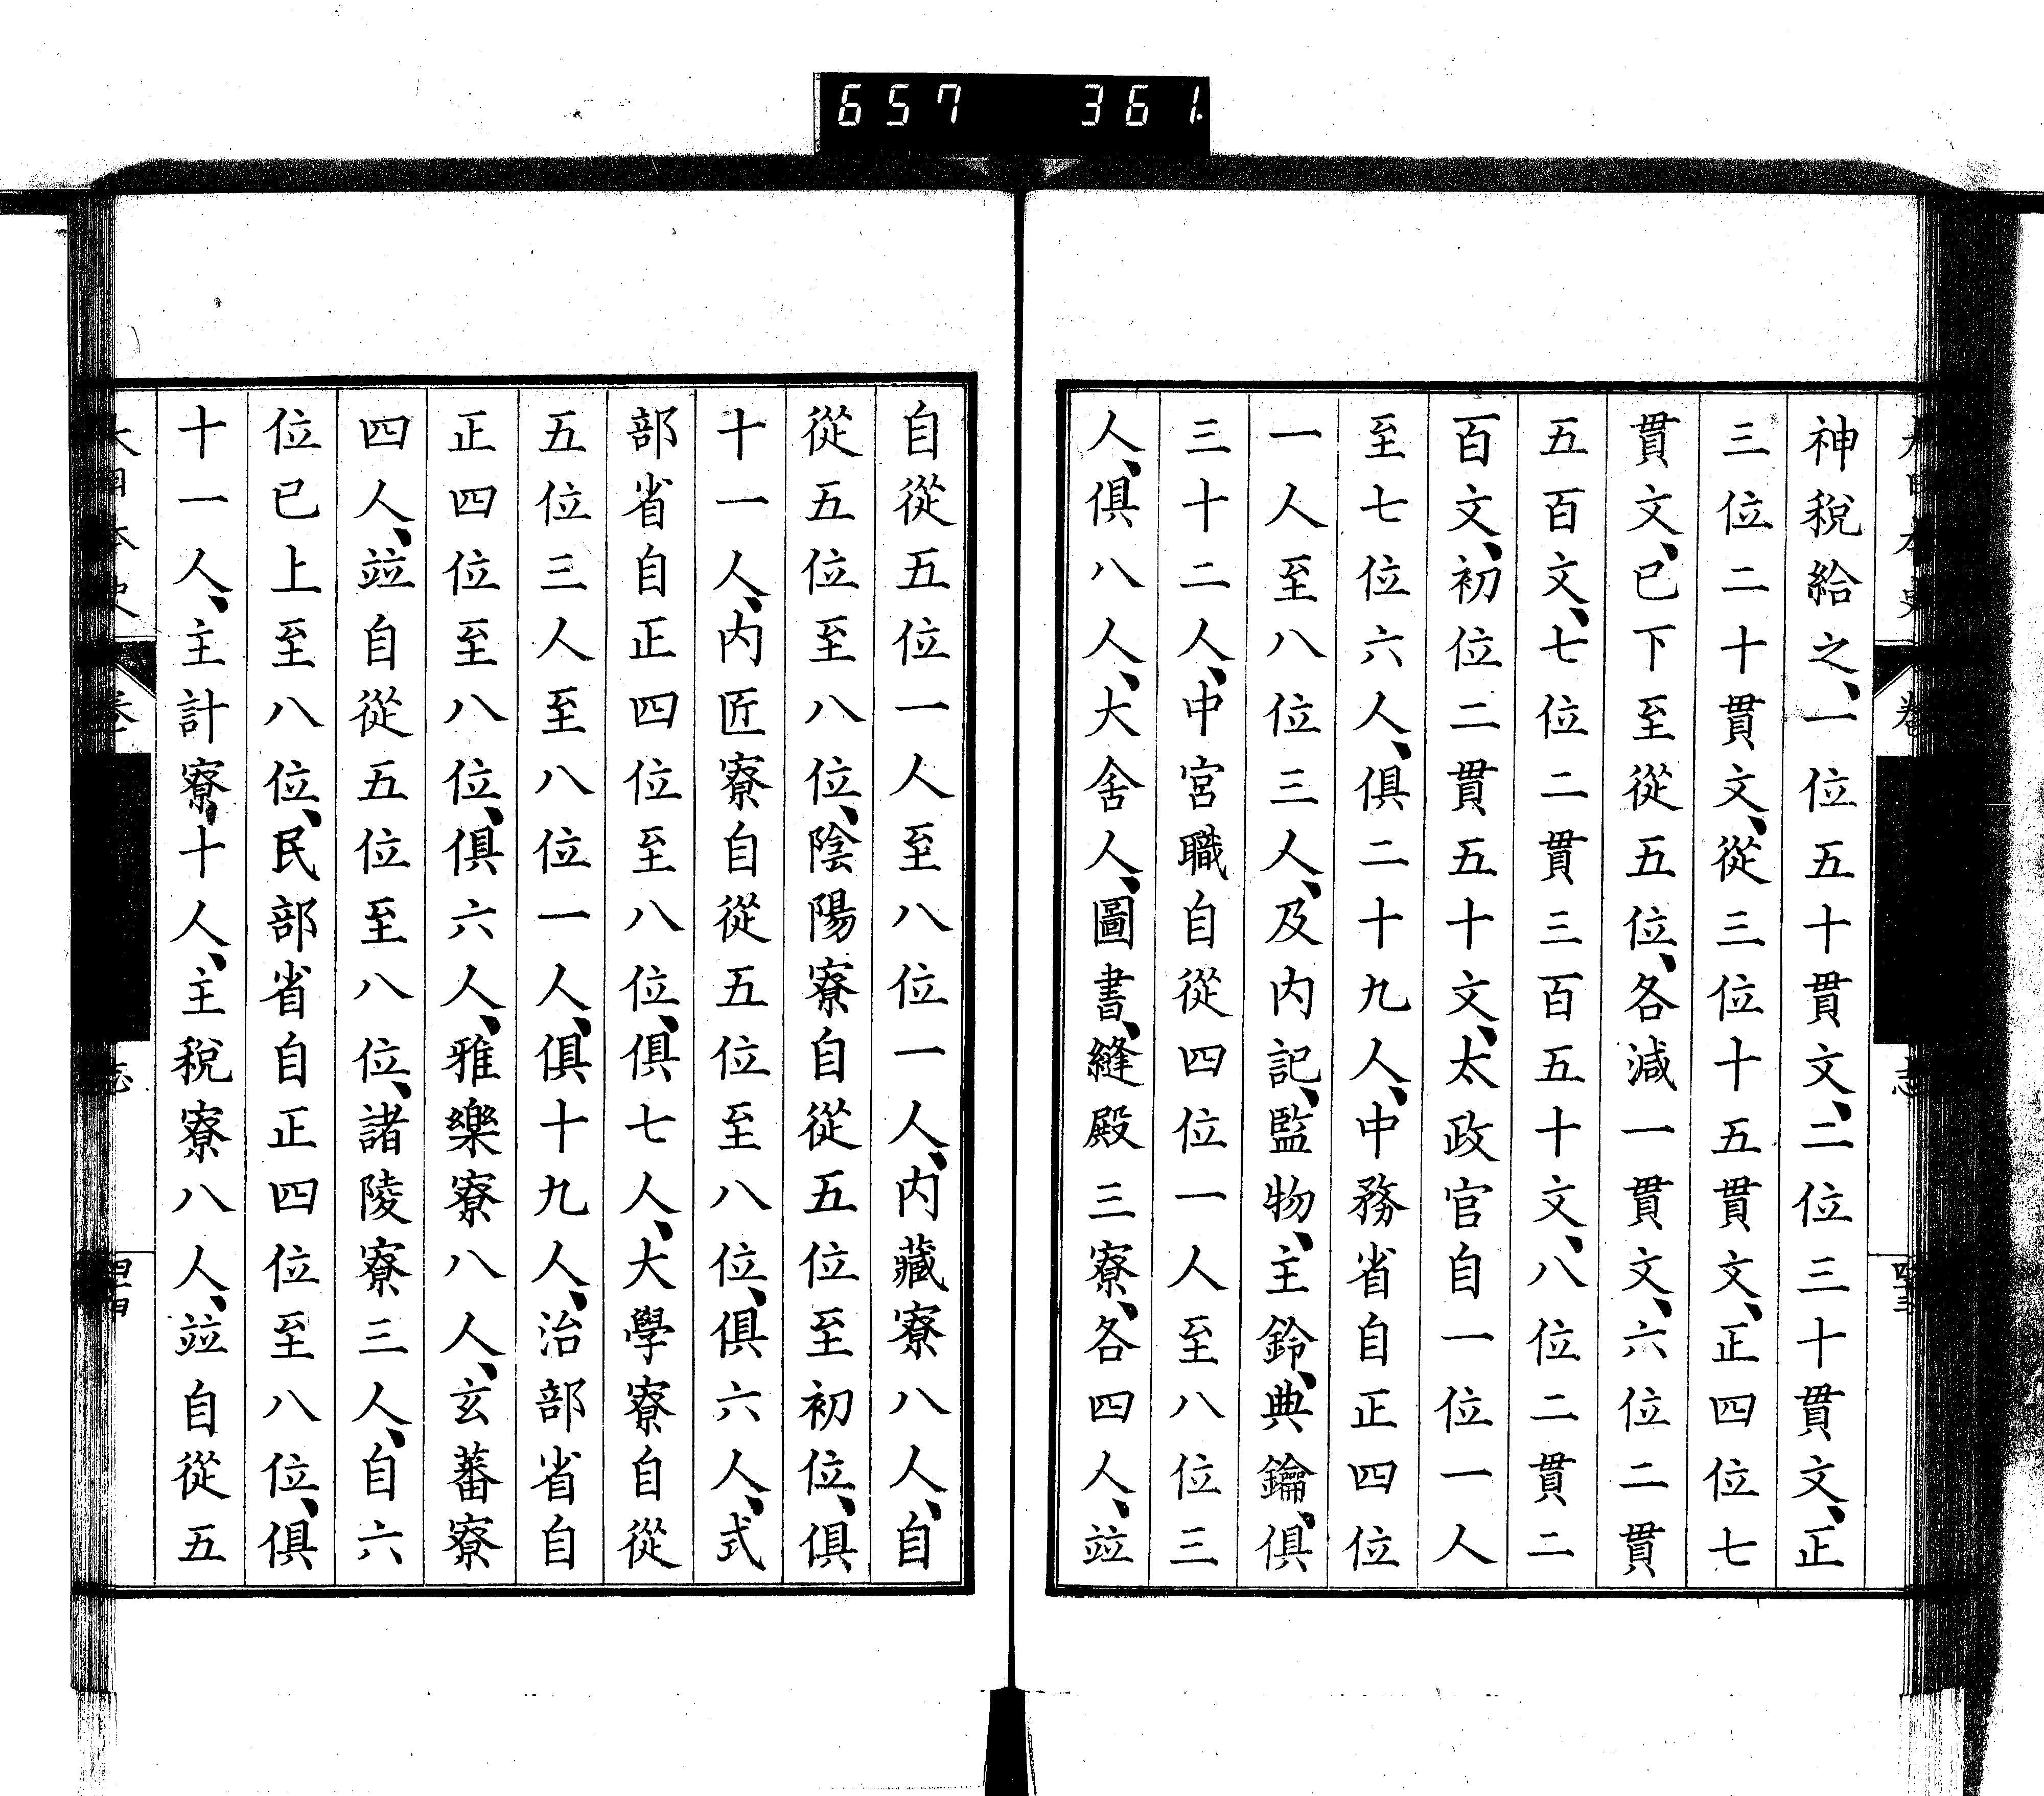 657 361
神稅給之、一位五十貫文、二位三十貫文、正
三位二十貫文、從三位十五貫文、正四位七
貫文、已下至從五位、各減一貫文、六位二貫
五百文、七位二貫三百五十文、八位二貫二
百文、初位二貫五十文、太政官自一位一人
至七位六人、俱二十九人、中務省自正四位
一人至八位三人、及內記、監物、主鈴、典鑰、俱
三十二人、中宮職自從四位一人至八位三
人、俱八人、大舍人、圖書、縫殿三寮、各四人、竝
自從五位一人至八位一人、內藏寮八人、自
從五位至八位、陰陽寮自從五位至初位、俱
十一人、內匠寮自從五位至八位、俱六人、式
部省自正四位至八位、俱七人、大學寮自從
五位三人至八位一人、俱十九人、治部省自
正四位至八位、俱六人、雅樂寮八人、玄蕃寮
四人、竝自從五位至八位、諸陵寮三人、自六
位已上至八位、民部省自正四位至八位、俱
十一人、主計寮十人、主稅寮八人、竝自從五